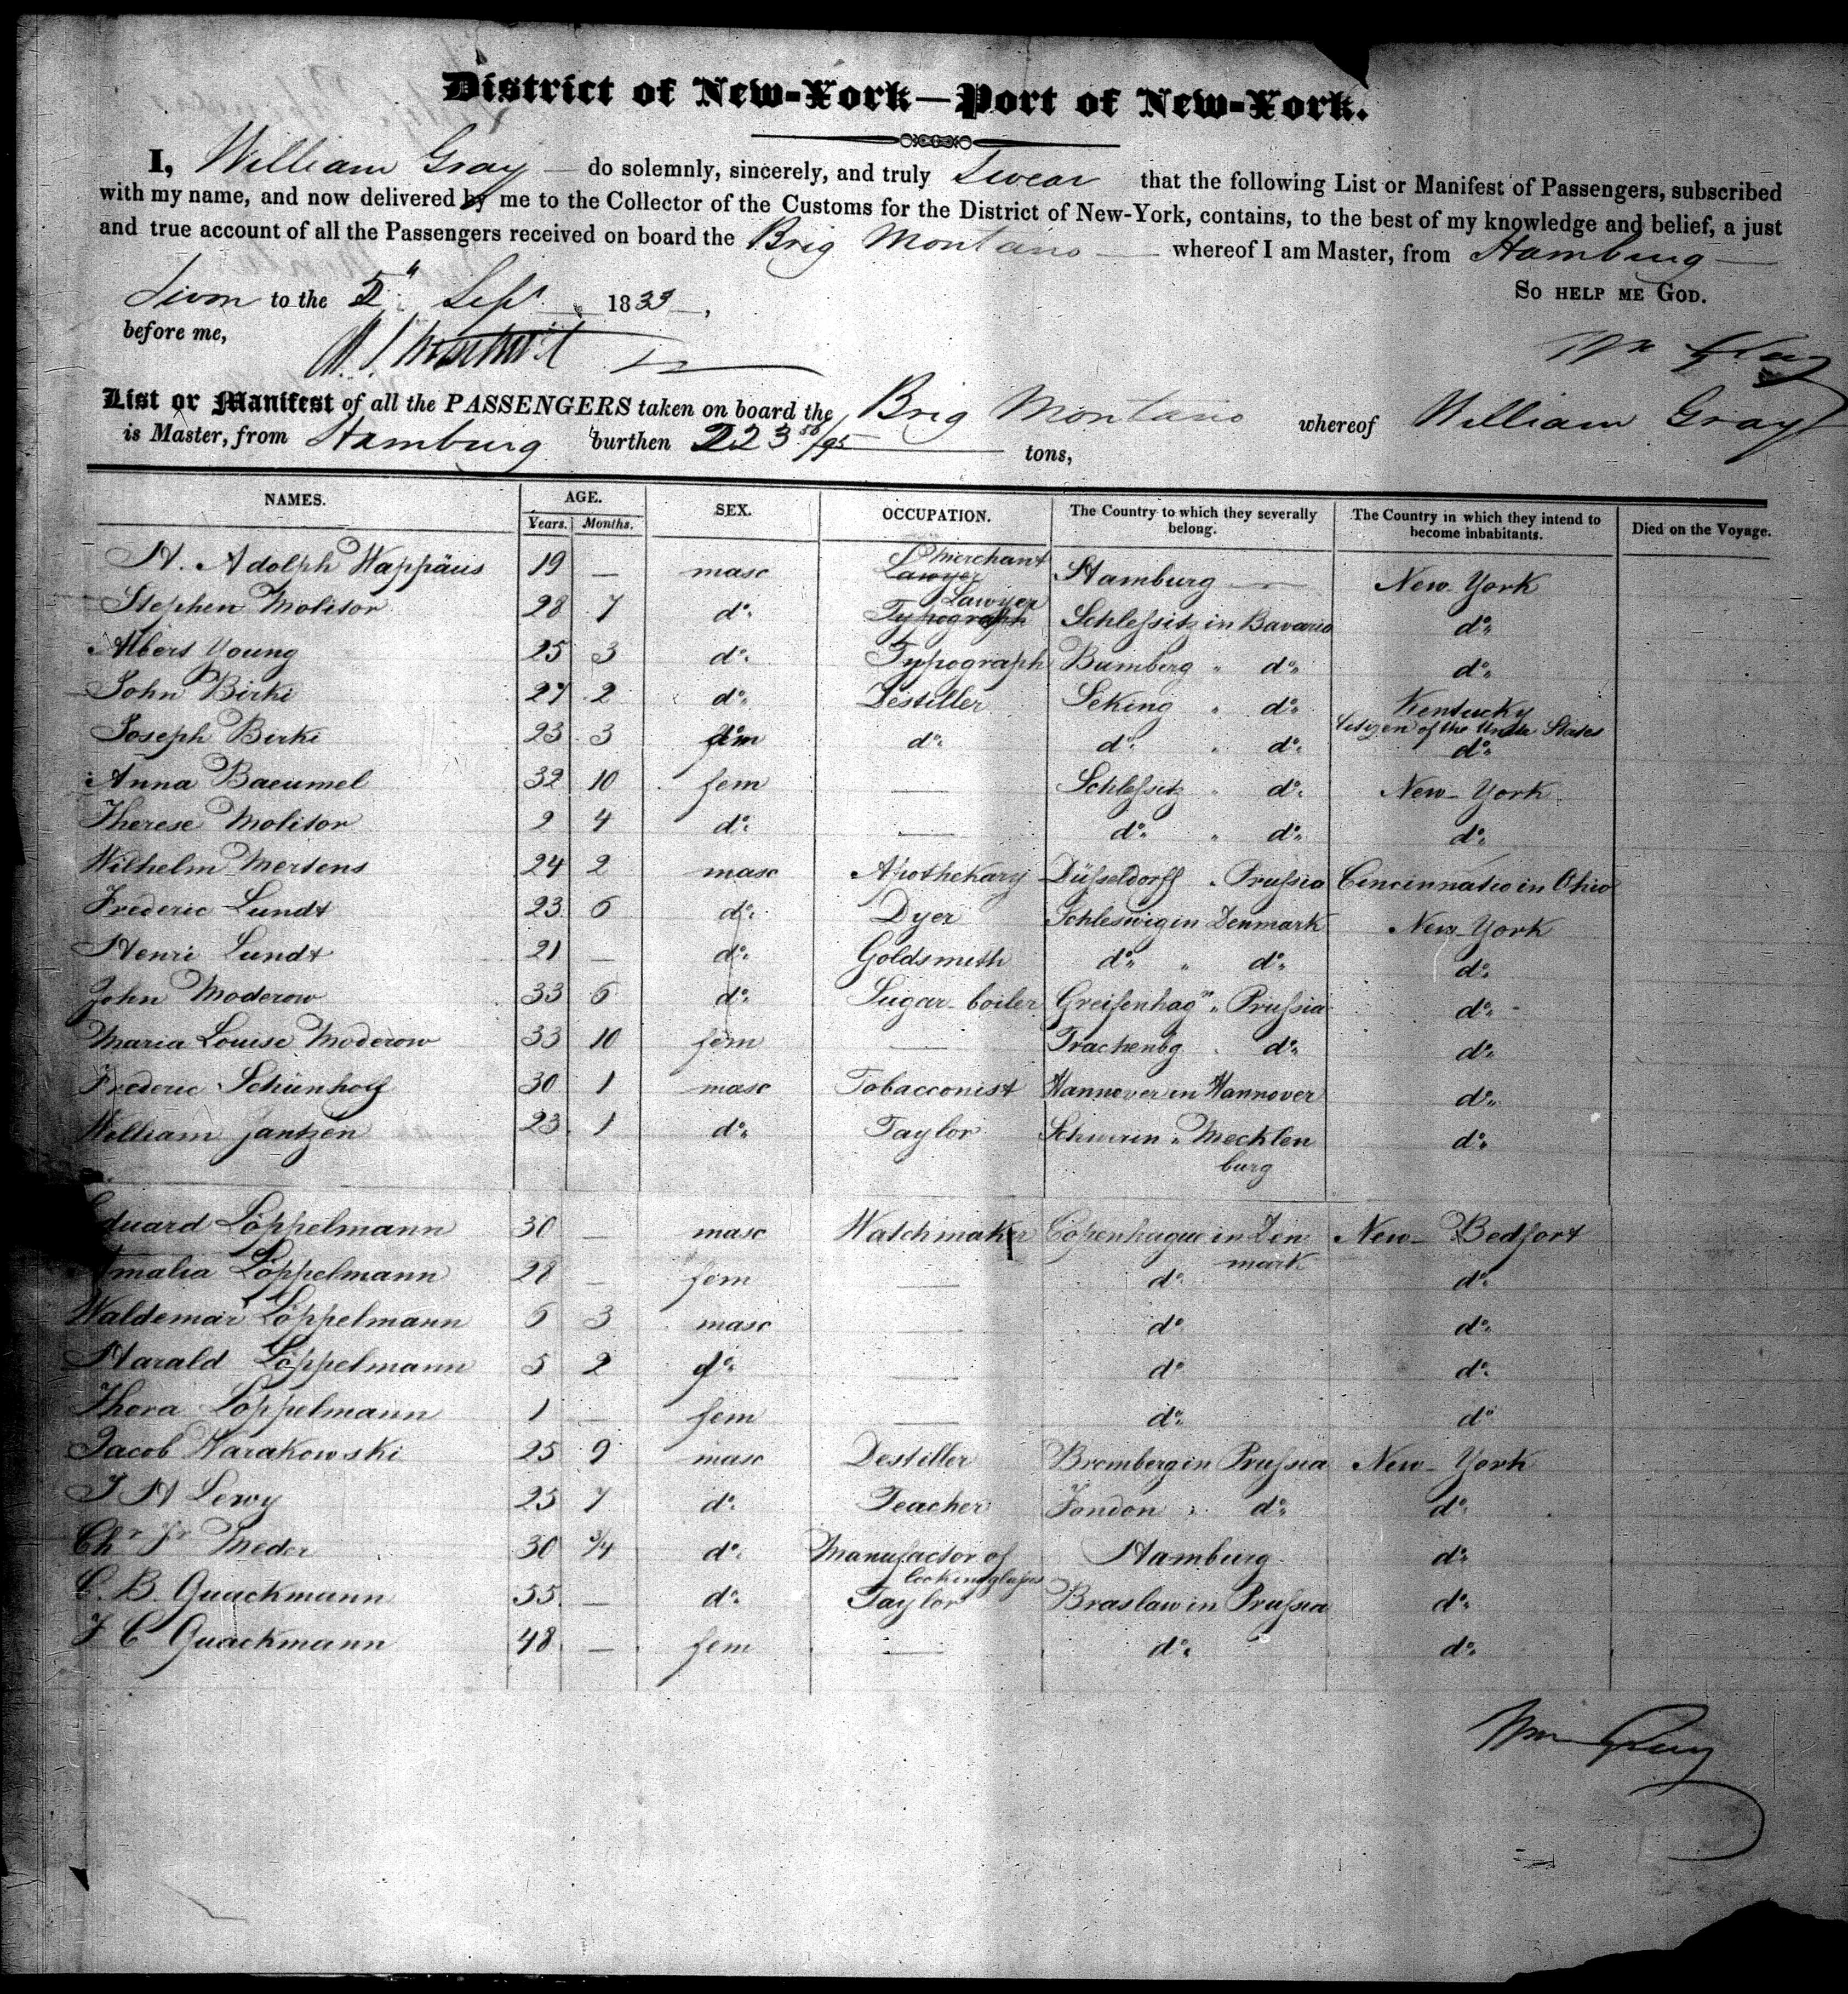 District of New-York—Port of New-York.
I, William Gray — do solemnly, sincerely, and truly Swear that the following List or Manifest of Passengers, subscribed
with my name, and now delivered by me to the Collector of the Customs for the District of New-York, contains, to the best of my knowledge and belief, a just
and true account of all the Passengers received on board the Brig Montano — whereof I am Master, from Hamburg —
So help me God.
to the 5th Sept 1833,
before me,
Wm Gray
List or Manifest of all the PASSENGERS taken on board the Brig Montano whereof William Gray
is Master, from Hamburg burthen 223 50/95 tons,
NAMES. AGE. SEX. OCCUPATION. The Country to which they severally belong. The Country in which they intend to become inhabitants. Died on the Voyage.
Years. Months.
H. Adolph Wappäus 19 — masc Lawyer Merchant Hamburg — New-York
Stephen Molitor 28 7 do. Typograph Lawyer Schlessitz in Bavaria do.
Albert Young 25 3 do. Typograph Bamberg " do. do.
John Birki 27 2 do. Destiller Seking " do. Kentucky
Joseph Birki 23 3 do. do. " do. Citizen of the Unite States do.
Anna Baeumel 32 10 fem — Schlessitz " do. New-York
Therese Molitor 2 4 do. — do. " do. do.
Wilhelm Mertens 24 2 masc Apothekary Düsseldorff " Prussia Cincinnatio in Ohio
Frederic Lundt 23 6 do. Dyer Schleswig in Denmark New-York
Henri Lundt 21 — do. Goldsmith do. " do. do.
John Moderow 33 6 do. Sugar-boiler Greifenhagn " Prussia do.
Maria Louise Moderow 33 10 fem — Trachenbg " do. do.
Frederic Schünhoff 30 1 masc Tobacconist Hannover in Hannover do.
William Jantzen 23 1 do. Taylor Schwerin " Mecklen do.
burg
Eduard Löppelmann 30 — masc Watchmaker Copenhague in Den New-Bedfort
mark
Amalia Löppelmann 28 — fem — do. do.
Waldemar Löppelmann 6 3 masc — do. do.
Harald Löppelmann 5 2 do. — do. do.
Thora Löppelmann 1 — fem — do. do.
Jacob Warakowski 25 9 masc Destiller Bromberg in Prussia New-York
J H Lewy 25 7 do. Teacher " do. do.
Chr Fr Meder 30 3/4 do. Manufactor of Hamburg do.
lookinglasses
C. B. Quackmann 55 — do. Taylor Braslaw in Prussia do.
F C Quackmann 48 — fem — do. do.
Wm Gray